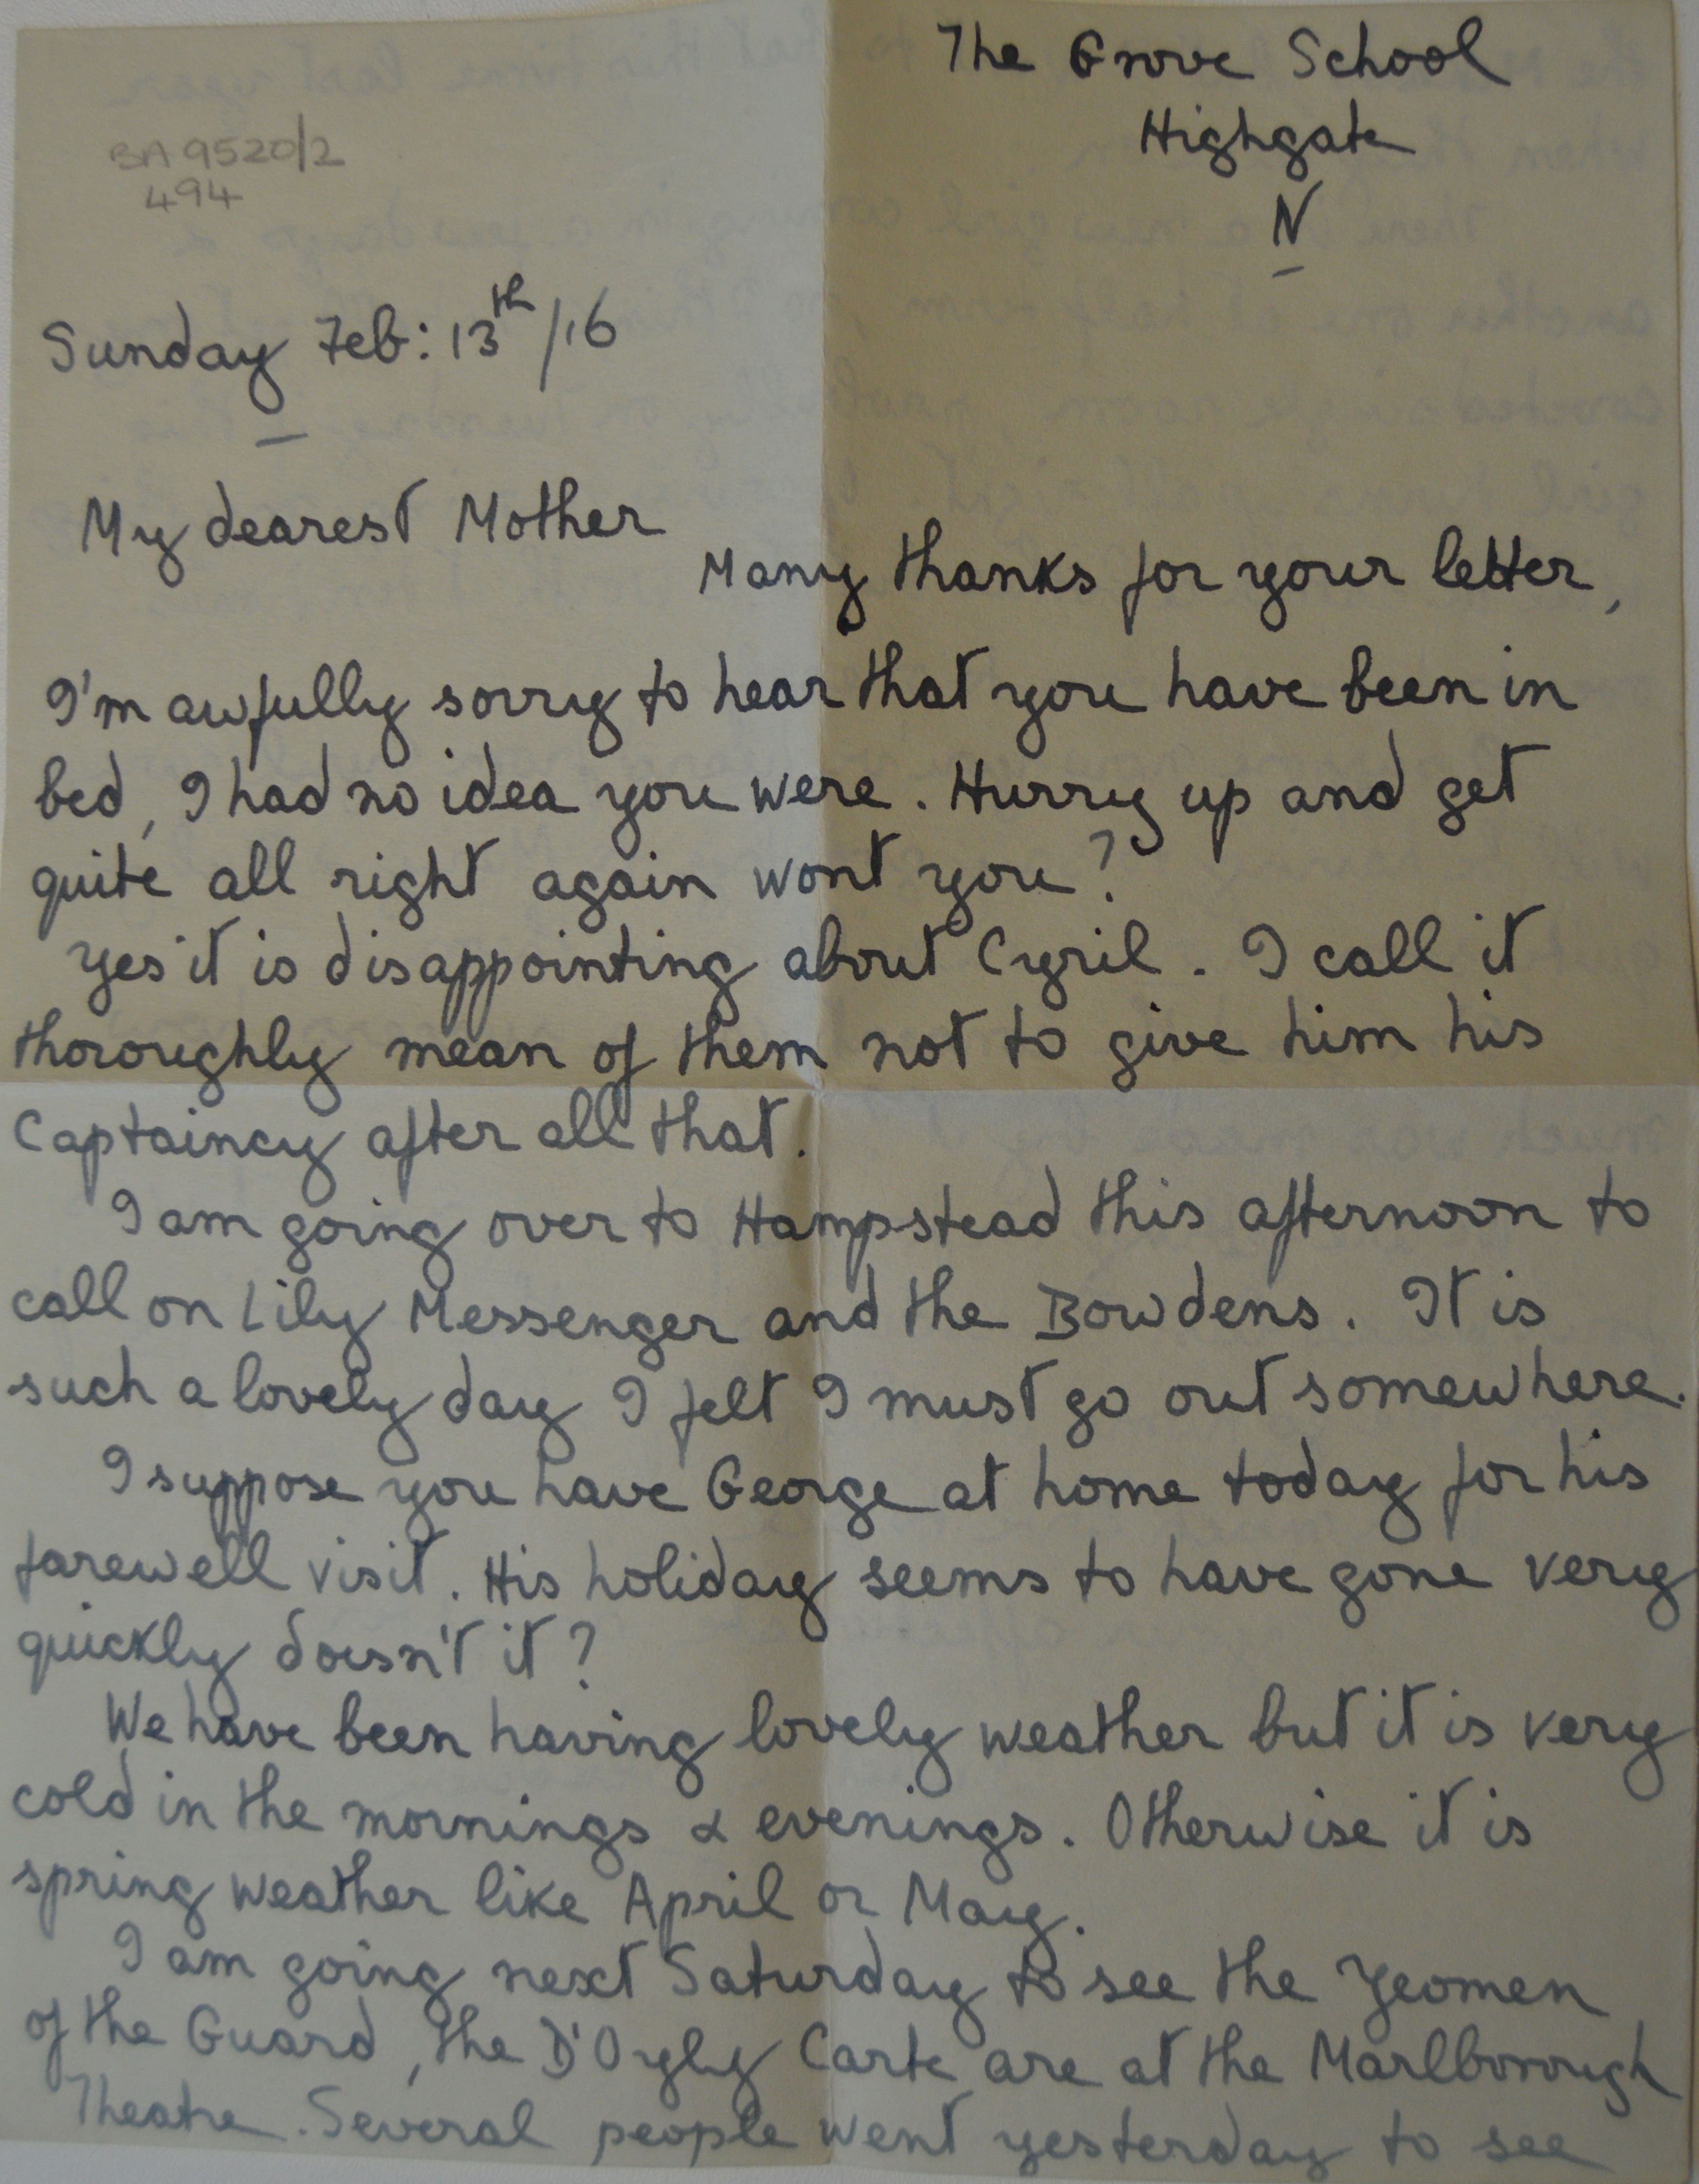 The Grove School
Highgate
N
BA 9520/2
494
Sunday Feb: 13th/16
My dearest Mother
Many thanks for your letter,
I'm awfully sorry to hear that you have been in
bed, I had no idea you were. Hurry up and get
quite all right again wont you?
Yes it is disappointing about Cyril. I call it
thoroughly mean of them not to give him his
Captaincy after all that.
I am going over to Hampstead this afternoon to
call on Lily Messenger and the Bowdens. It is
such a lovely day I felt I must go out somewhere.
I suppose you have George at home today for his
farewell visit. His holiday seems to have gone very
quickly doesn't it?
We have been having lovely weather but it is very
cold in the mornings & evenings. Otherwise it is
spring weather like April or May.
I am going next Saturday to see the Yeomen
of the Guard, the D'Oyly Carte are at the Marlborough
Theatre. Several people went yesterday to see